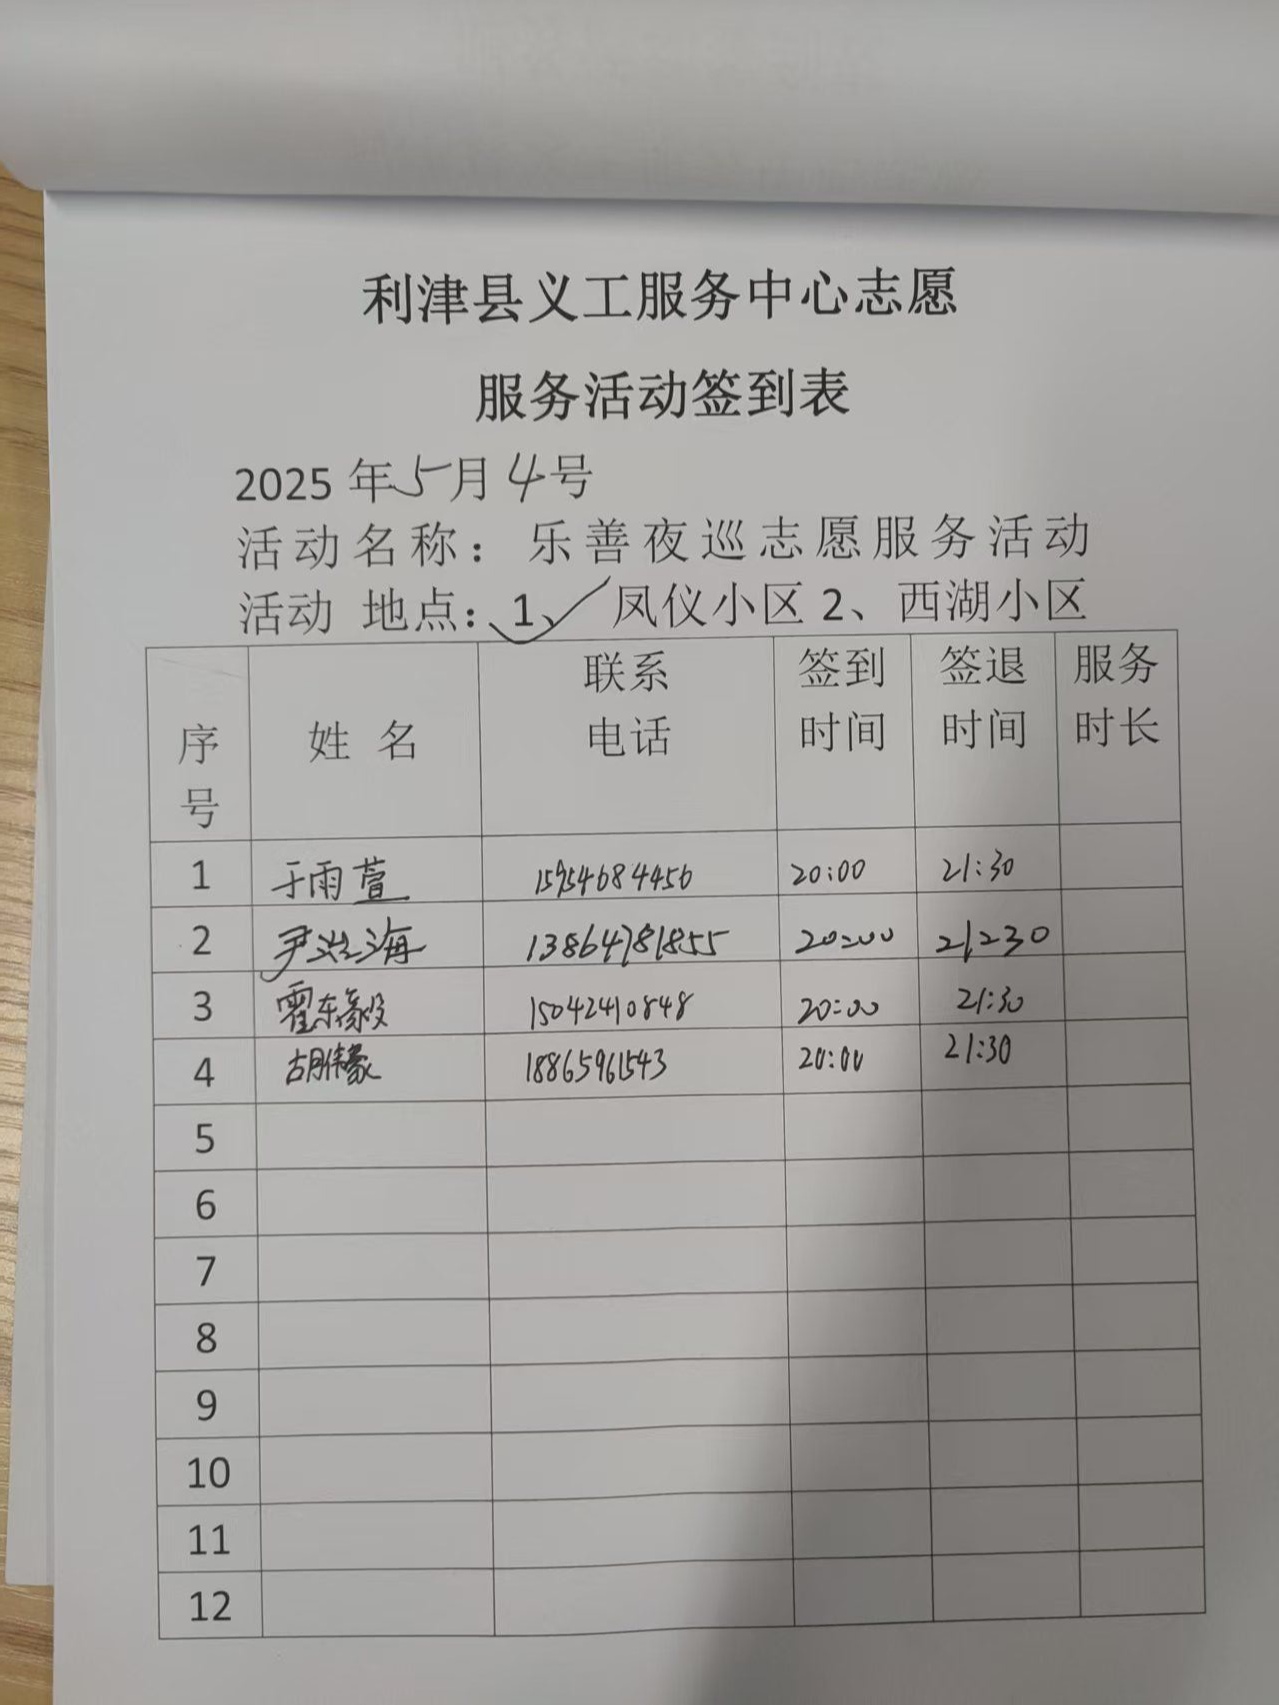 利津县义工服务中心志愿
服务活动签到表
2025 年 5 月 4 号
活动名称：乐善夜巡志愿服务活动
活动 地点：1、✓ 凤仪小区 2、西湖小区
序号 姓 名 联系电话 签到时间 签退时间 服务时长
1 于雨萱 15954684456 20:00 21:30
2 尹洪海 13864781855 20:00 21:30
3 霍东毅 15042410848 20:00 21:30
4 胡伟豪 18865961543 20:00 21:30
5
6
7
8
9
10
11
12